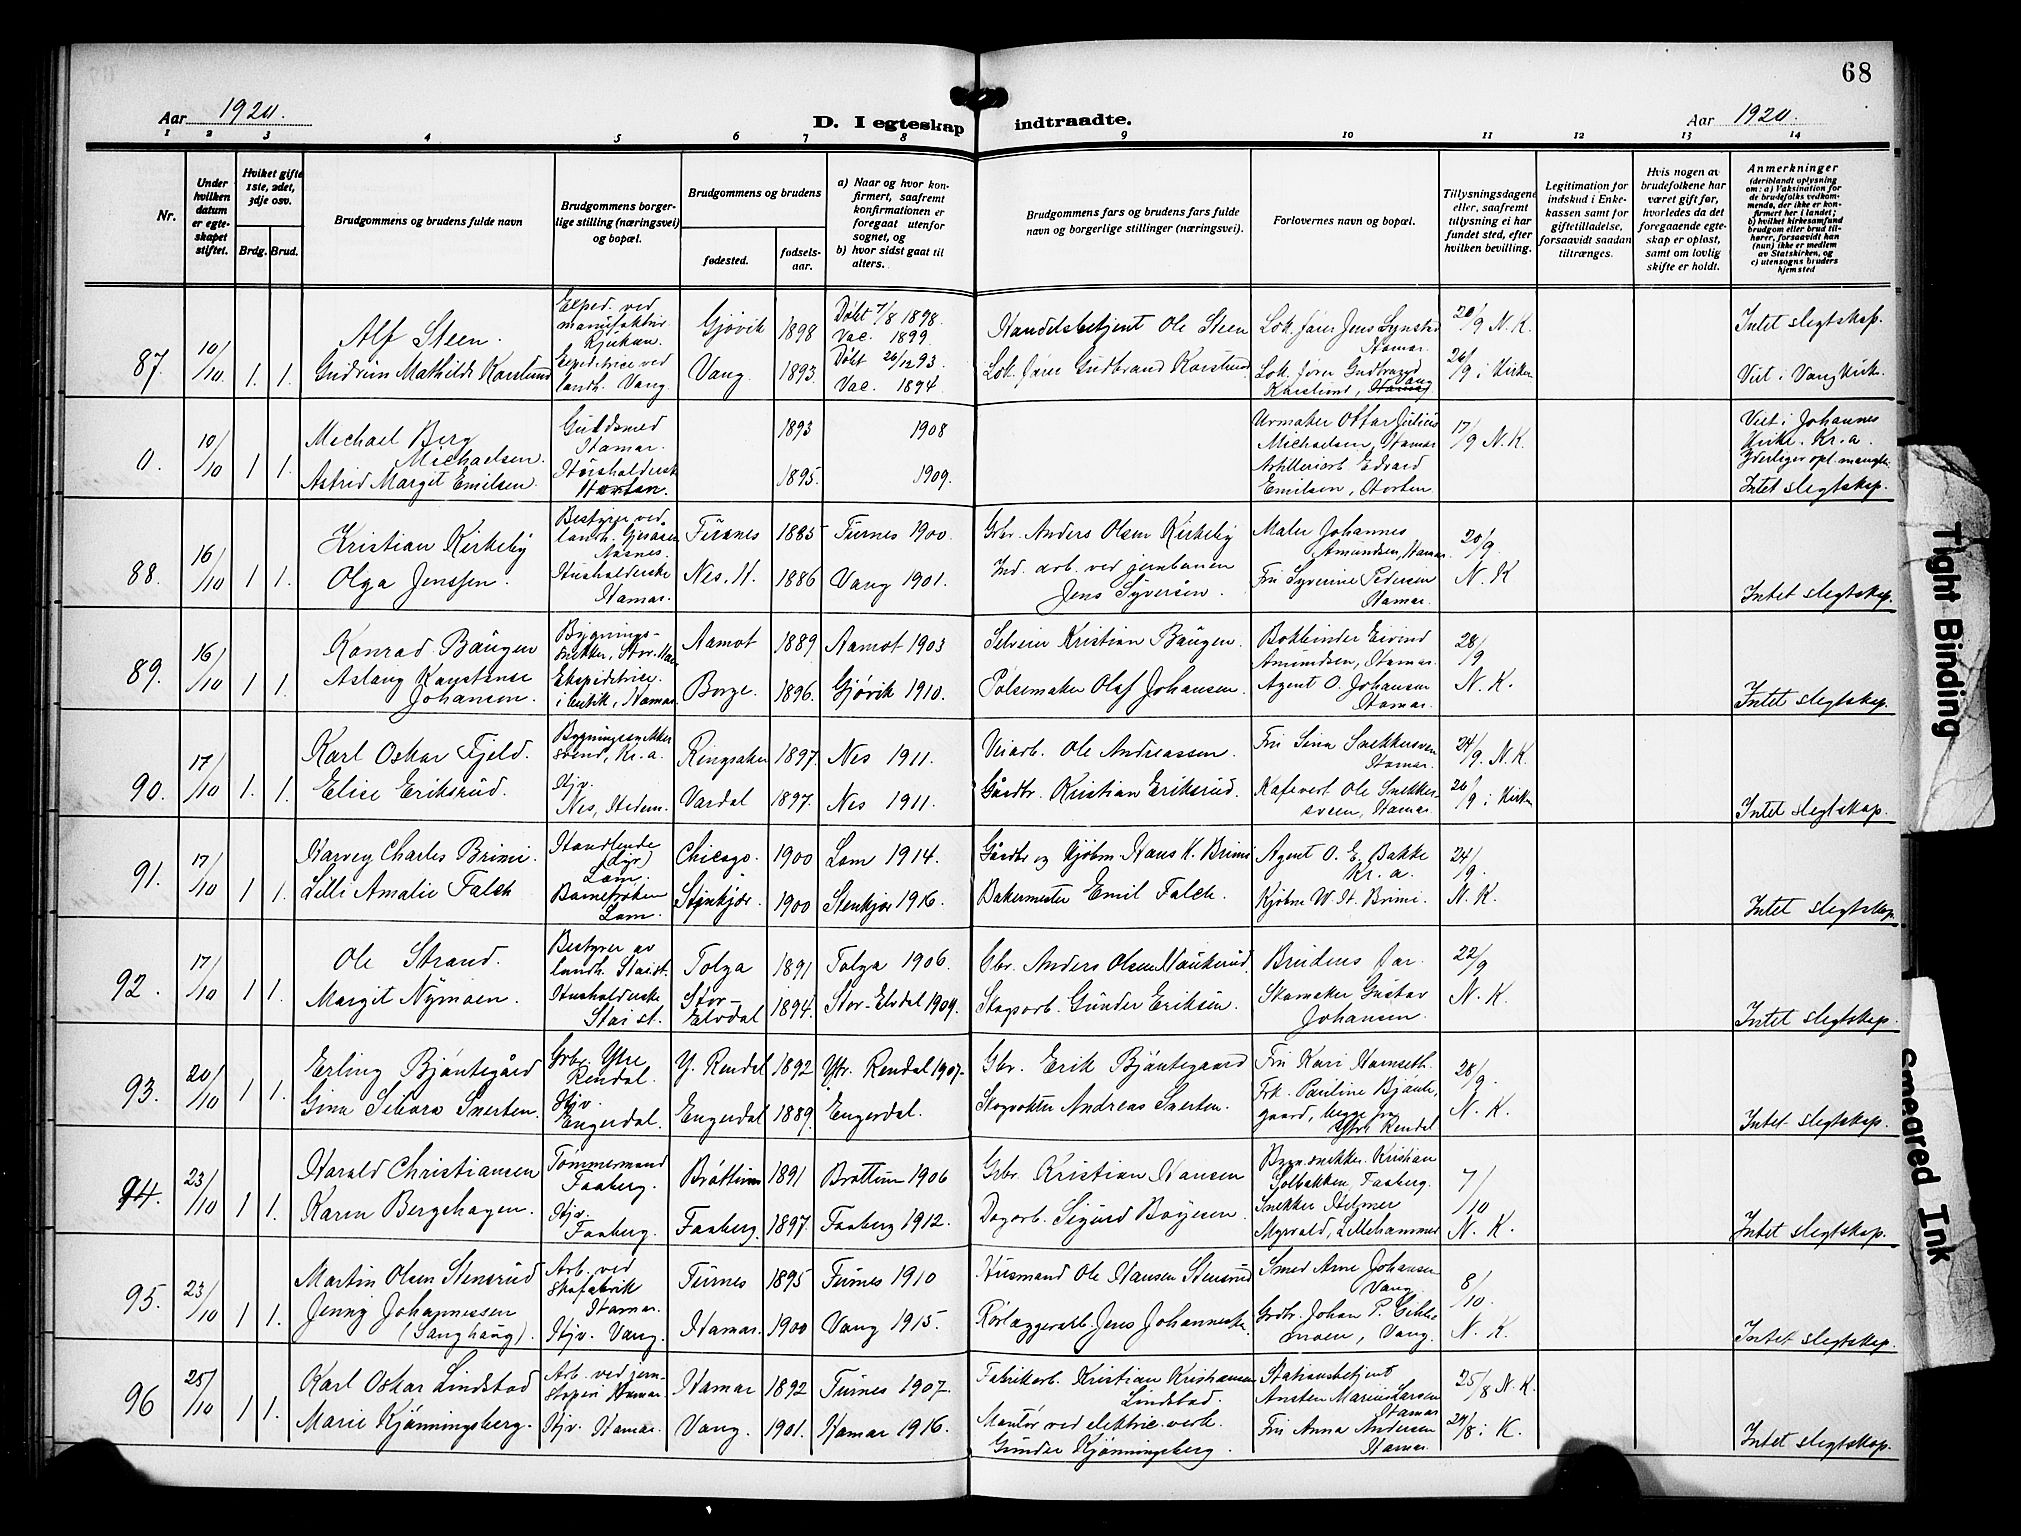 68
Aar 1920.
D. I egteskap indtraadte.
Aar 1920.
1 2 3 4 5 6 7 8 9 10 11 12 13 14
Nr.
Under hvilken datum er egte-skapet stiftet.
Hvilket gifte 1ste, 2det, 3dje osv.
Brdg. Brud.
Brudgommens og brudens fulde navn
Brudgommens borger-lige stilling (næringsvei) og bopæl.
Brudgommens og brudens
fødested.
fødsels-aar.
a) Naar og hvor kon-firmert, saafremt konfirmationen er foregaat utenfor sognet, og
b) hvor sidst gaat til alters.
Brudgommens fars og brudens fars fulde navn og borgerlige stillinger (næringsvei).
Forlovernes navn og bopæl.
Tillysningsdagene eller, saafremt tillysning ei har fundet sted, efter hvilken bevilling.
Legitimation for indskud i Enke-kassen samt for giftetilladelse, forsaavidt saadan tiltrænges.
Hvis nogen av brudefolkene har været gift før, hvorledes da det foregaaende egte-skap er opløst, samt om lovlig skifte er holdt.
Anmerkninger
(deriblandt oplysning om: a) Vaksination for de brudefolks vedkom-mende, der ikke er kon-firmert her i landet; b) hvilket kirkesamfund brudgom eller brud til-hører, forsaavidt han (hun) ikke er medlem av Statskirken, og c) utensogns bruders hjemsted
87. 10/10. 1. 1.
Alf Steen.
Gudrun Mathilde Karslund
Exped. ved manufaktur. Rjukan.
Expeditrice ved landh. Vang.
Gjøvik 1898
Vang. 1893.
Døbt 7/8 1898. Vac. 1899.
Døbt 26/12 93. Vac. 1894.
Handelsbetjent Ole Steen
Lok. fører Gudbrand Karslund.
Lok. fører Jens Lynstad Hamar.
Lok. fører Gudbrand Karslund, Vang
20/9 N. K.
26/9 i Kirken
Intet slegtskap.
Viet i Vang Kirke.
0. 10/10 1 1.
Michael Berg Michaelsen.
Astrid Margit Emilsen.
Guldsmed Hamar.
Husholderske Horten.
1893
1895.
1908
1909.
Urmaker Ottar Julius Michaelsen, Hamar
Artilleriarb. Edvard Emilsen, Horten
17/9 N. K.
Viet i Johannes Kirke. Kr.a.
Yderliger opl. mangler.
Intet slegtskap.
88. 16/10 1 1.
Kristian Kirkeby
Olga Jenssen.
Bestyrer ved landh. Aasnes.
Husholderske Hamar.
Furnes 1885
Nes. H. 1886
Furnes 1900.
Vang 1901.
Gbr. Anders Olsen Kirkeby
Ind. arb. ved jernbanen Jens Syversen.
Maler Johannes Amundsen, Hamar.
Fru Syverine Pedersen Hamar.
20/9.
N. K
Intet slegtskap.
89. 16/10 1 1.
Konrad Baugen
Aslaug Konstanse Johansen.
Bygnings-snekker, Stor. Hamar
Ekspeditrice i butik, Hamar.
Aamot 1889
Borge. 1896.
Aamot 1903
Gjøvik 1910.
Selveier Kristian Baugen.
Pølsemaker Olaf Johansen.
Bokbinder Eivind Amundsen, Hamar.
Agent O. Johansen Hamar.
28/9
N. K.
Intet slegtskap.
90. 17/10 1. 1.
Karl Oskar Fjeld.
Elise Eriksrud.
Bygningssnekker svend, Kr.a.
Hjv. Nes, Hedem.
Ringsaker 1897.
Vardal 1897.
Nes 1911.
Nes 1911.
Veiarb. Ole Andreassen.
Gårdbr. Kristian Eriksrud.
Fru Sina Snekkersveen Hamar.
Kafevert Ole Snekker-sveen, Hamar.
24/9. N. K.
26/9 i Kirken
Intet slegtskap.
91. 17/10 1 1.
Harvey Charles Brimi.
Lilli Amalie Falch
Handlende (dyr) Lom.
Barnefrøken Lom.
Chicago. 1900
Stenkjær 1900
Lom 1914.
Stenkjær 1916.
Gårdbr og kjøbm. Hans K. Brimi
Bakermester Emil Falch.
Agent O. E. Bakke Kr. a.
Kjøbm W. H. Brimi.
24/9.
N. K.
Intet slegtskap.
92. 17/10 1 1.
Ole Strand.
Margit Nymoen.
Bestyrer av landh. Stai st.
Husholderske Stai st.
Tolga 1891
Stor-Elvdal 1894.
Tolga 1906.
Stor-Elvdal 1909.
Gbr. Anders Olsen Haukerud.
Skogsarb. Gunder Eriksen.
Brudens far.
Skomaker Gustav Johansen.
22/9
N. K.
Intet slegtskap.
93. 20/10 1 1.
Erling Bjøntegård
Gina Sibora Snerten.
Grbr. Ytre Rendal.
Hjv. Engerdal.
Y. Rendal 1892
Engerdal 1889.
Ytr. Rendal 1907.
Engerdal.
Gbr. Erik Bjøntegaard
Skogvokter Andreas Snerten.
Fru Kari Hamseth.
Frk. Pauline Bjønte-gaard, begge fra Ytre Rendal
28/9.
N. K.
Intet slegtskap.
94. 23/10 1 1.
Harald Christiansen
Karen Bergehagen.
Tømmermand Faaberg.
Hjv. Faaberg.
Brøttum 1891
Faaberg. 1897.
Brøttum 1906
Faaberg 1912.
Grbr. Kristian Hansen
Dagarb. Sigurd Bøyesen.
Bygn.snekker. Kristian Solbakken, Faaberg.
Snekker Helmer Myrvold, Lillehammer
7/10
N. K.
Intet slegtskap.
95. 23/10 1 1.
Martin Olsen Stensrud
Jenny Johannessen (Sanghaug).
Arb. ved Skofabrik Hamar.
Hjv. Vang.
Furnes 1895
Hamar. 1900
Furnes 1910
Vang 1915.
Husmand Ole Hansen Stensrud
Rørlæggerarb. Jens Johannessen.
Smed Arne Johansen Vang
Grdbr. Johan P. Gihle-moen, Vang.
8/10.
N. K.
Intet slegtskap.
96 25/10 1 1.
Karl Oskar Lindstad
Marie Kjønningsberg.
Arb. ved jern-støperi Hamar
Hjv. Hamar.
Hamar 1892
Vang. 1901.
Furnes 1907.
Hamar 1916.
Fabrikarb. Kristian Kristiansen Lindstad.
Montør ved elektric. verk. Gunder Kjønningsberg.
Stationsbetjent Ansten Marius Larsen Hamar
Fru Anna Andersen Hamar.
25/8 N. K.
29/8 i K.
Intet slegtskap.
Tight Binding
Smeared Ink